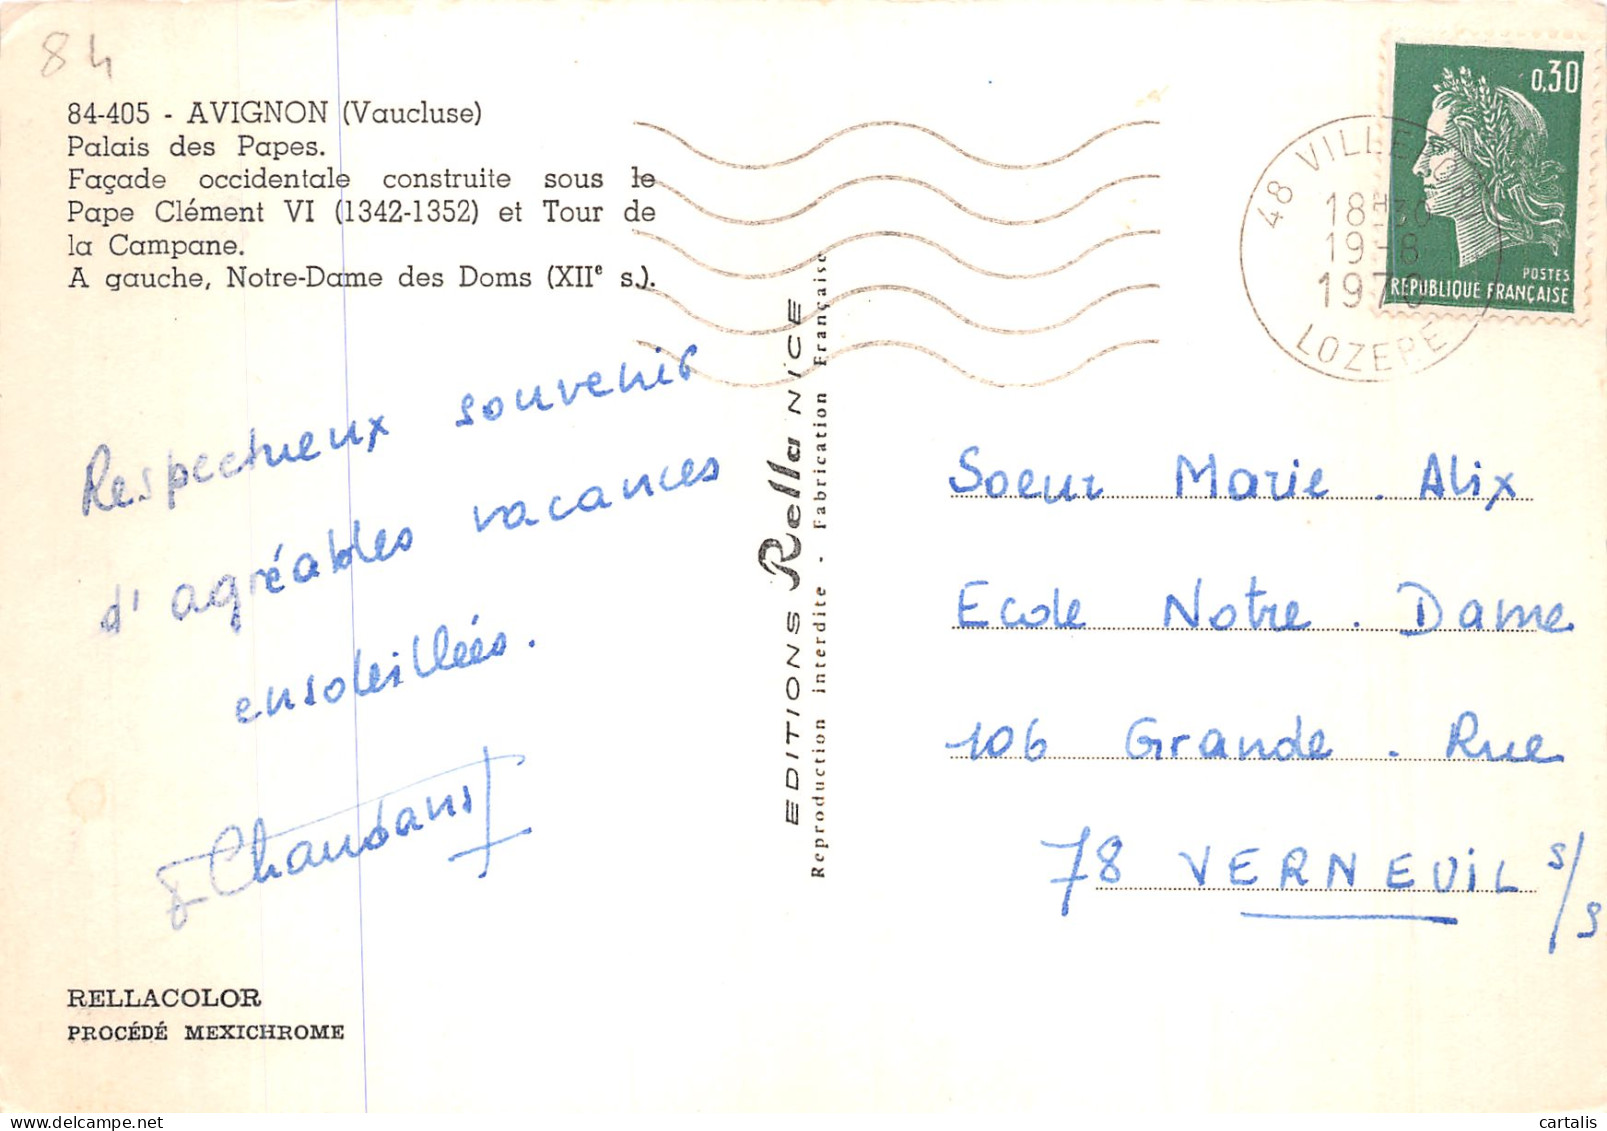 84
84-405 - AVIGNON (Vaucluse)
Palais des Papes.
Façade occidentale construite sous le
Pape Clément VI (1342-1352) et Tour de
la Campane.
A gauche, Notre-Dame des Doms (XIIe s.).
Respectueux souvenir
d'agréables vacances
ensoleillées.
RELLACOLOR
PROCÉDÉ MEXICHROME
EDITIONS Rella NICE
Reproduction interdite - Fabrication Française
0,30
POSTES
REPUBLIQUE FRANÇAISE
48
18H30
19-8
1970
LOZERE
Soeur Marie. Alix
Ecole Notre. Dame
106 Grande. Rue
78 VERNEUIL s/s
cartalis